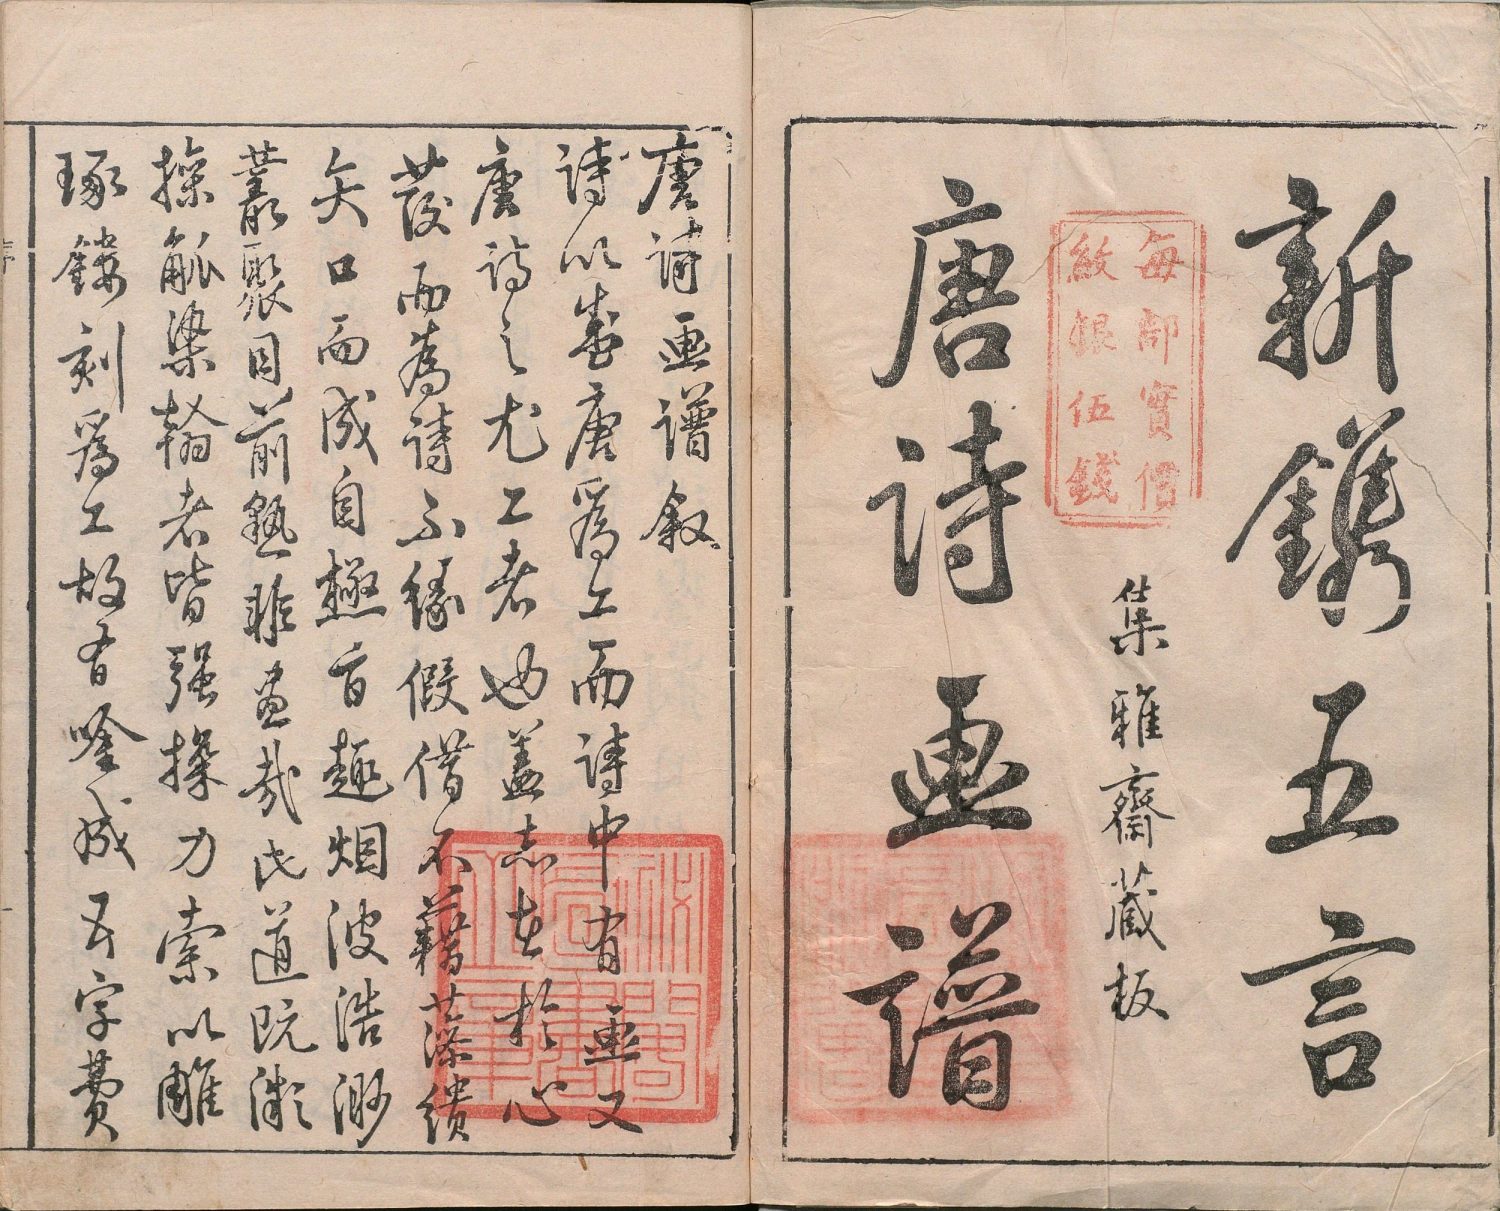 新鐫五言
每部實價
紋銀伍錢
集雅齋藏板
唐詩畫譜
唐詩画譜叙
詩以盛唐爲工而詩中有画又
唐詩之尤工者也蓋志在於心
發而為詩不緣假借不藉藻繢
矢口而成自極旨趣烟波浩渺
叢聚目前孰非畫哉氏道既漓
操觚染翰者皆强操力索以雕
琢鏤刻爲工故有唫成五字費
序
一